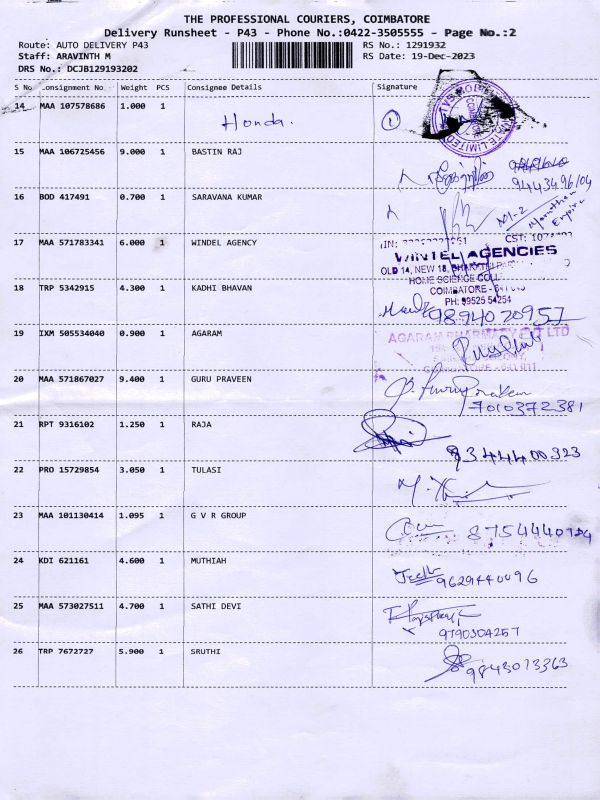 THE PROFESSIONAL COURIERS, COIMBATORE
Delivery Runsheet - P43 - Phone No.:0422-3505555 - Page No.:2
Route: AUTO DELIVERY P43
RS No.: 1291932
Staff: ARAVINTH M
RS Date: 19-Dec-2023
DRS No.: DCJB129193202
S No. Consignment No. Weight PCS Consignee Details Signature
14 MAA 107578686 1.000 1 Honda. 1
15 MAA 106725456 9.000 1 BASTIN RAJ
9443496104
16 BOD 417491 0.700 1 SARAVANA KUMAR
17 MAA 571783341 6.000 1 WINDEL AGENCY
CST:
WINTEL AGENCIES
OLD 14, NEW 18,
HOME SCIENCE
COIMBATORE -
PH: 99525 54254
18 TRP 5342915 4.300 1 KADHI BHAVAN
9894020957
19 IXM 505534040 0.900 1 AGARAM
AGARAM PHARMACY PVT LTD
20 MAA 571867027 9.400 1 GURU PRAVEEN
7010372381
21 RPT 9316102 1.250 1 RAJA
9344400323
22 PRO 15729854 3.050 1 TULASI
23 MAA 101130414 1.095 1 G V R GROUP
24 KDI 621161 4.600 1 MUTHIAH
9629440096
25 MAA 573027511 4.700 1 SATHI DEVI
9790304257
26 TRP 7672727 5.900 1 SRUTHI
9843013363